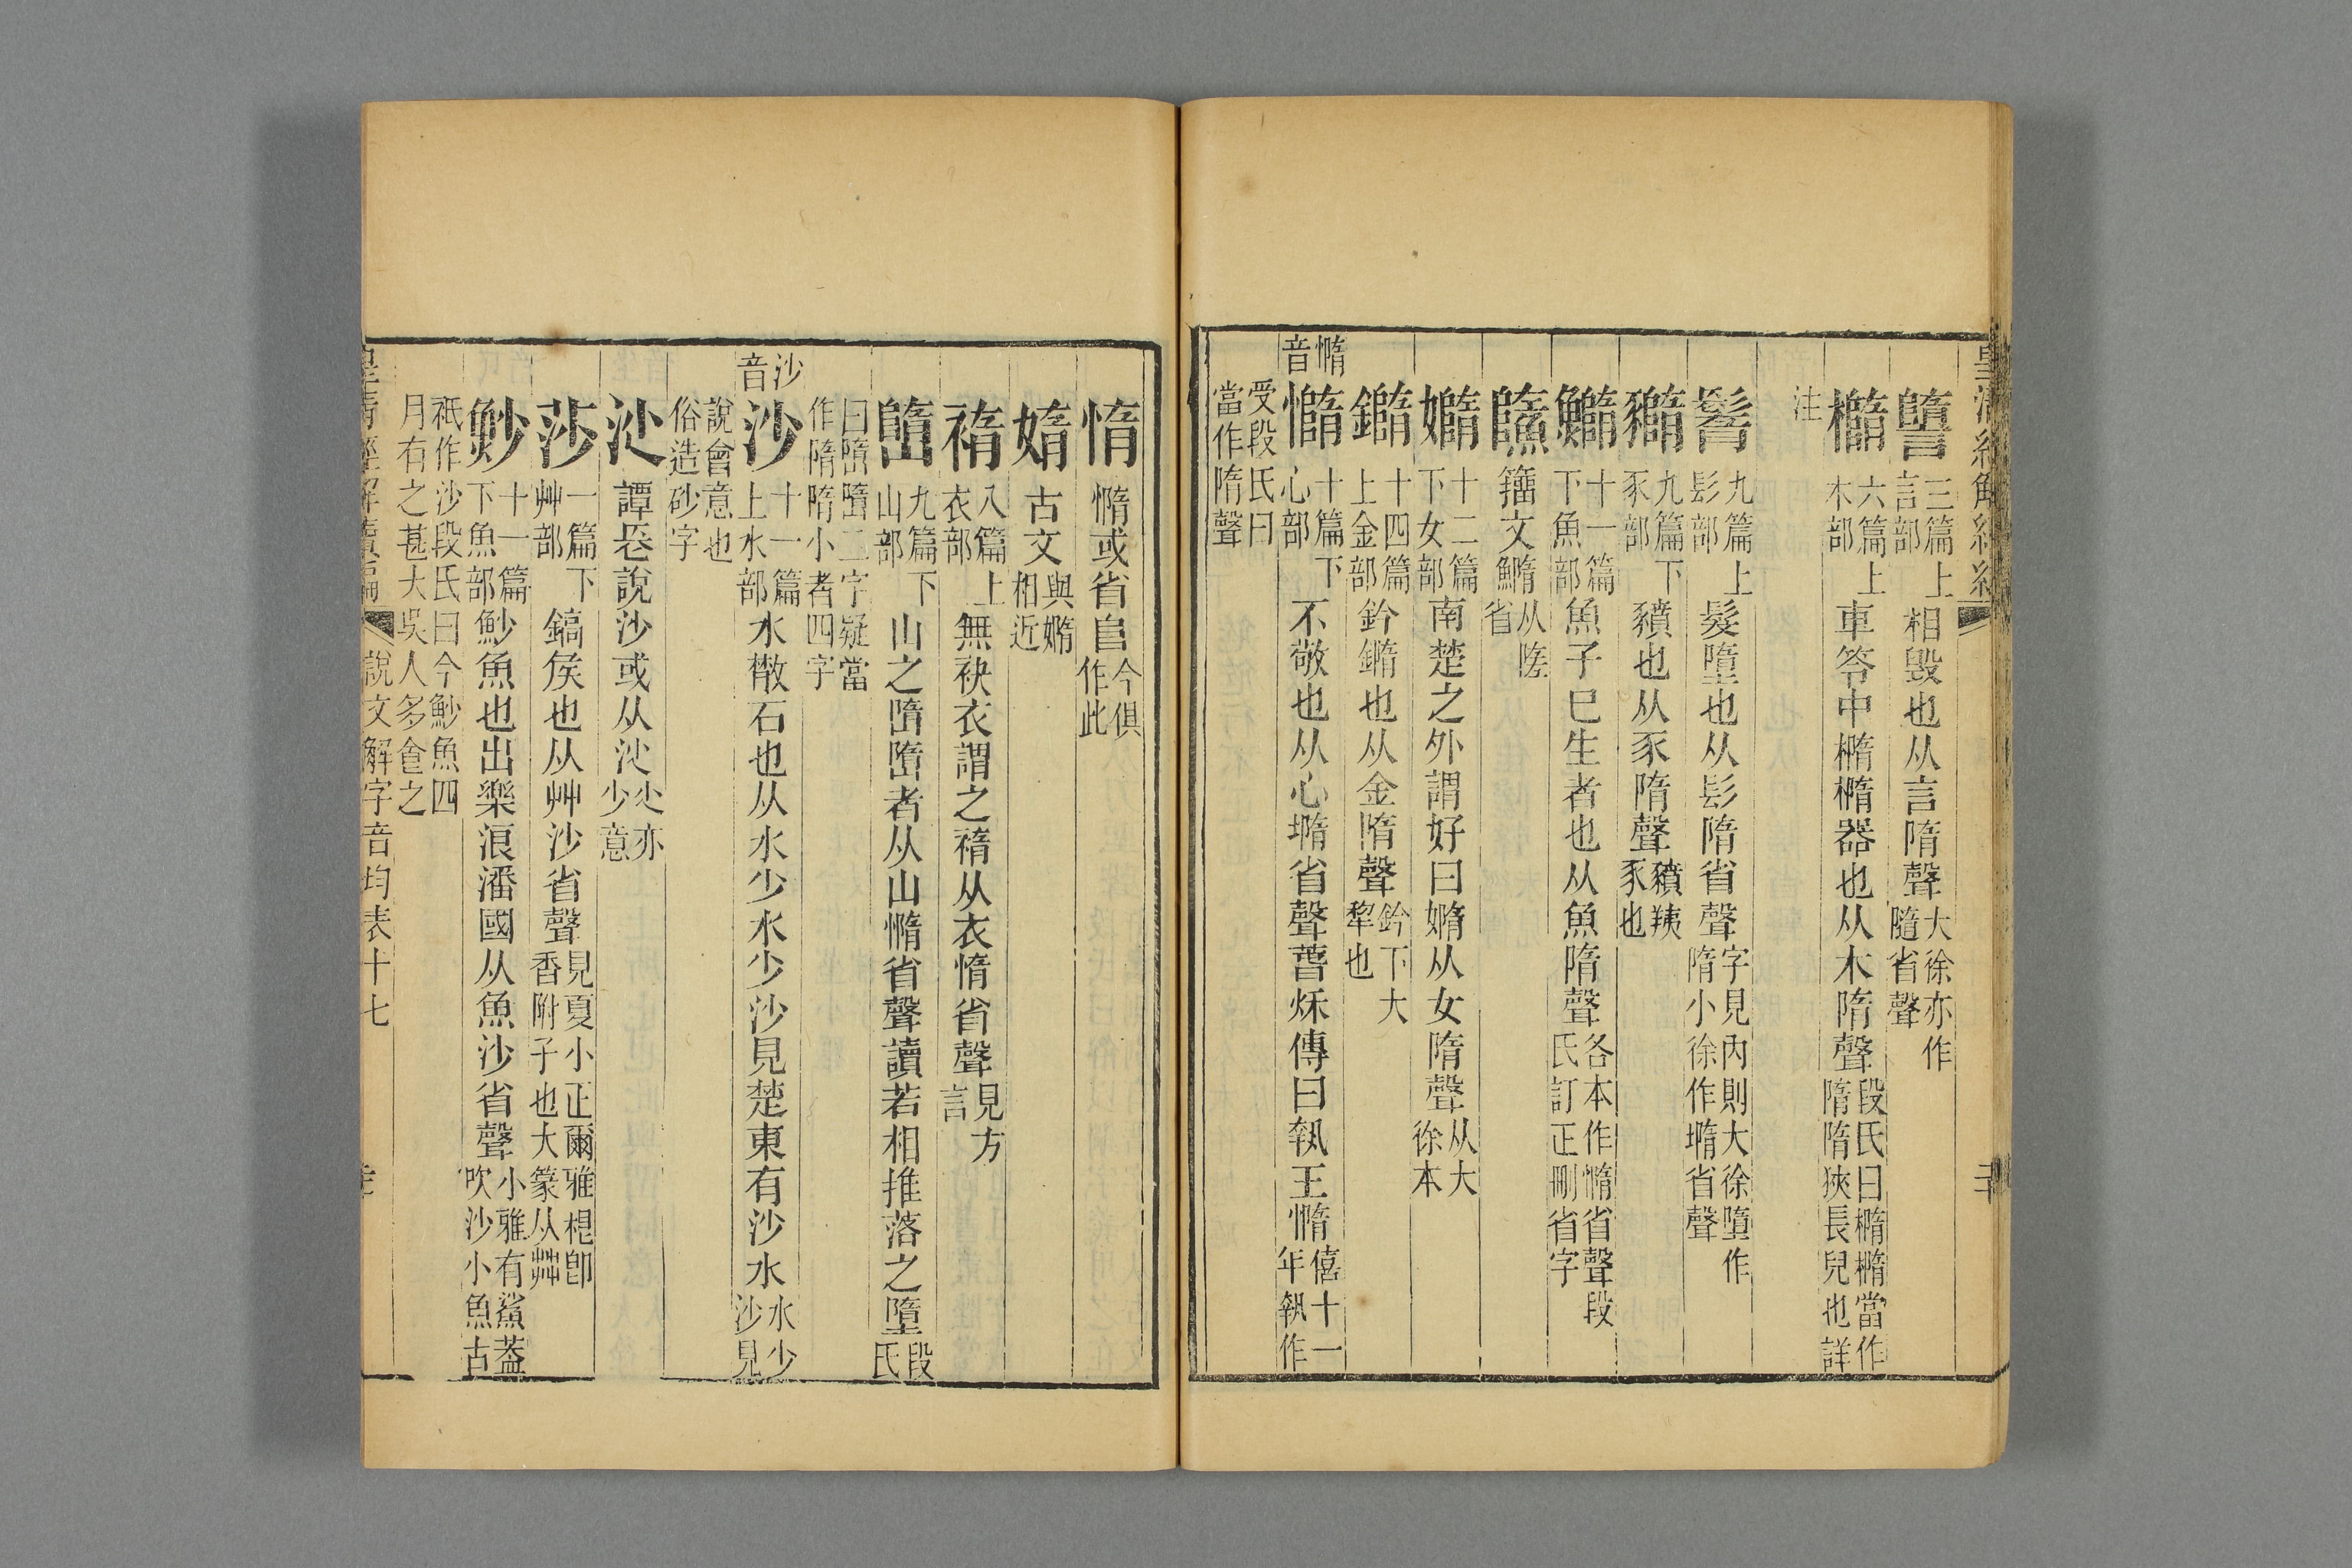 三篇上言部相毀也从言隋聲大徐亦作隨省聲
橢六篇上木部車笭中橢橢器也从木隋聲段氏曰橢橢當作隋隋狹長皃也詳
注
鬌九篇上髟部髮墮也从髟隋省聲字見內則大徐墮作隋小徐作墮省聲
豶九篇下豕部豶也从豕隋聲豶羠豕也
鰖十一篇下魚部魚子已生者也从魚隋聲各本作憜省聲段氏訂正刪省字
籒文鰖从省
嫷十二篇下女部南楚之外謂好曰嫷从女隋聲从大徐本
鐫十四篇上金部鈐鐫也从金隋聲鈐下大犂也
憜音
憜十篇下心部不敬也从心墮省聲萅秌傳曰執玉憜僖十一年執作
受段氏曰當作隋聲
惰憜或省𨸏今俱作此
媠古文與嫷相近
褅八篇上衣部無袂衣謂之褅从衣惰省聲見方言
九篇下山部山之者从山憜省聲讀若相推落之墮段氏
曰二字疑當作隋隋小者四字
沙音
沙十一篇上水部水散石也从水少水少沙見楚東有沙水水少沙見
說會意也俗造砂字
沙譚長說沙或从尐尐亦少意
莎一篇下艸部鎬矦也从艸沙省聲見夏小正爾雅梍卽香附子也大篆从茻
魦十一篇下魚部魦魚也出樂浪潘國从魚沙省聲小雅有鯊葢吹沙小魚古
衹作沙段氏曰今魦魚四月有之甚大吳人多食之
皇清經解續編 說文解字音均表十七